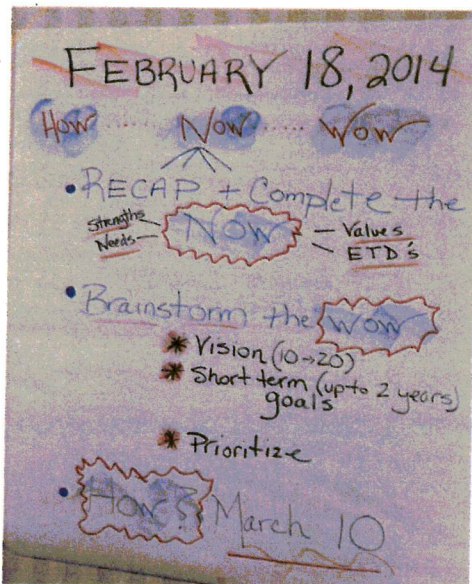 FEBRUARY 18, 2014
How ..... Now ..... Wow
• RECAP + Complete the
Strengths
Needs — NOW — Values
ETD's
• Brainstorm the WOW
* Vision (10→20)
* Short term (up to 2 years)
goals
* Prioritize
• How? March 10